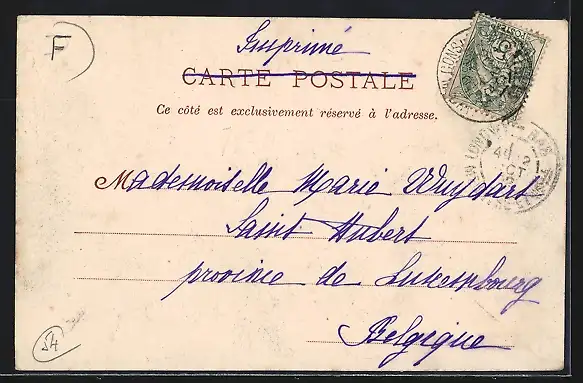 F
Imprimé
CARTE POSTALE
Ce côté est exclusivement réservé à l'adresse.
Mademoiselle Marie Wuydart
Saint Hubert
province de Luxembourg
Belgique
54